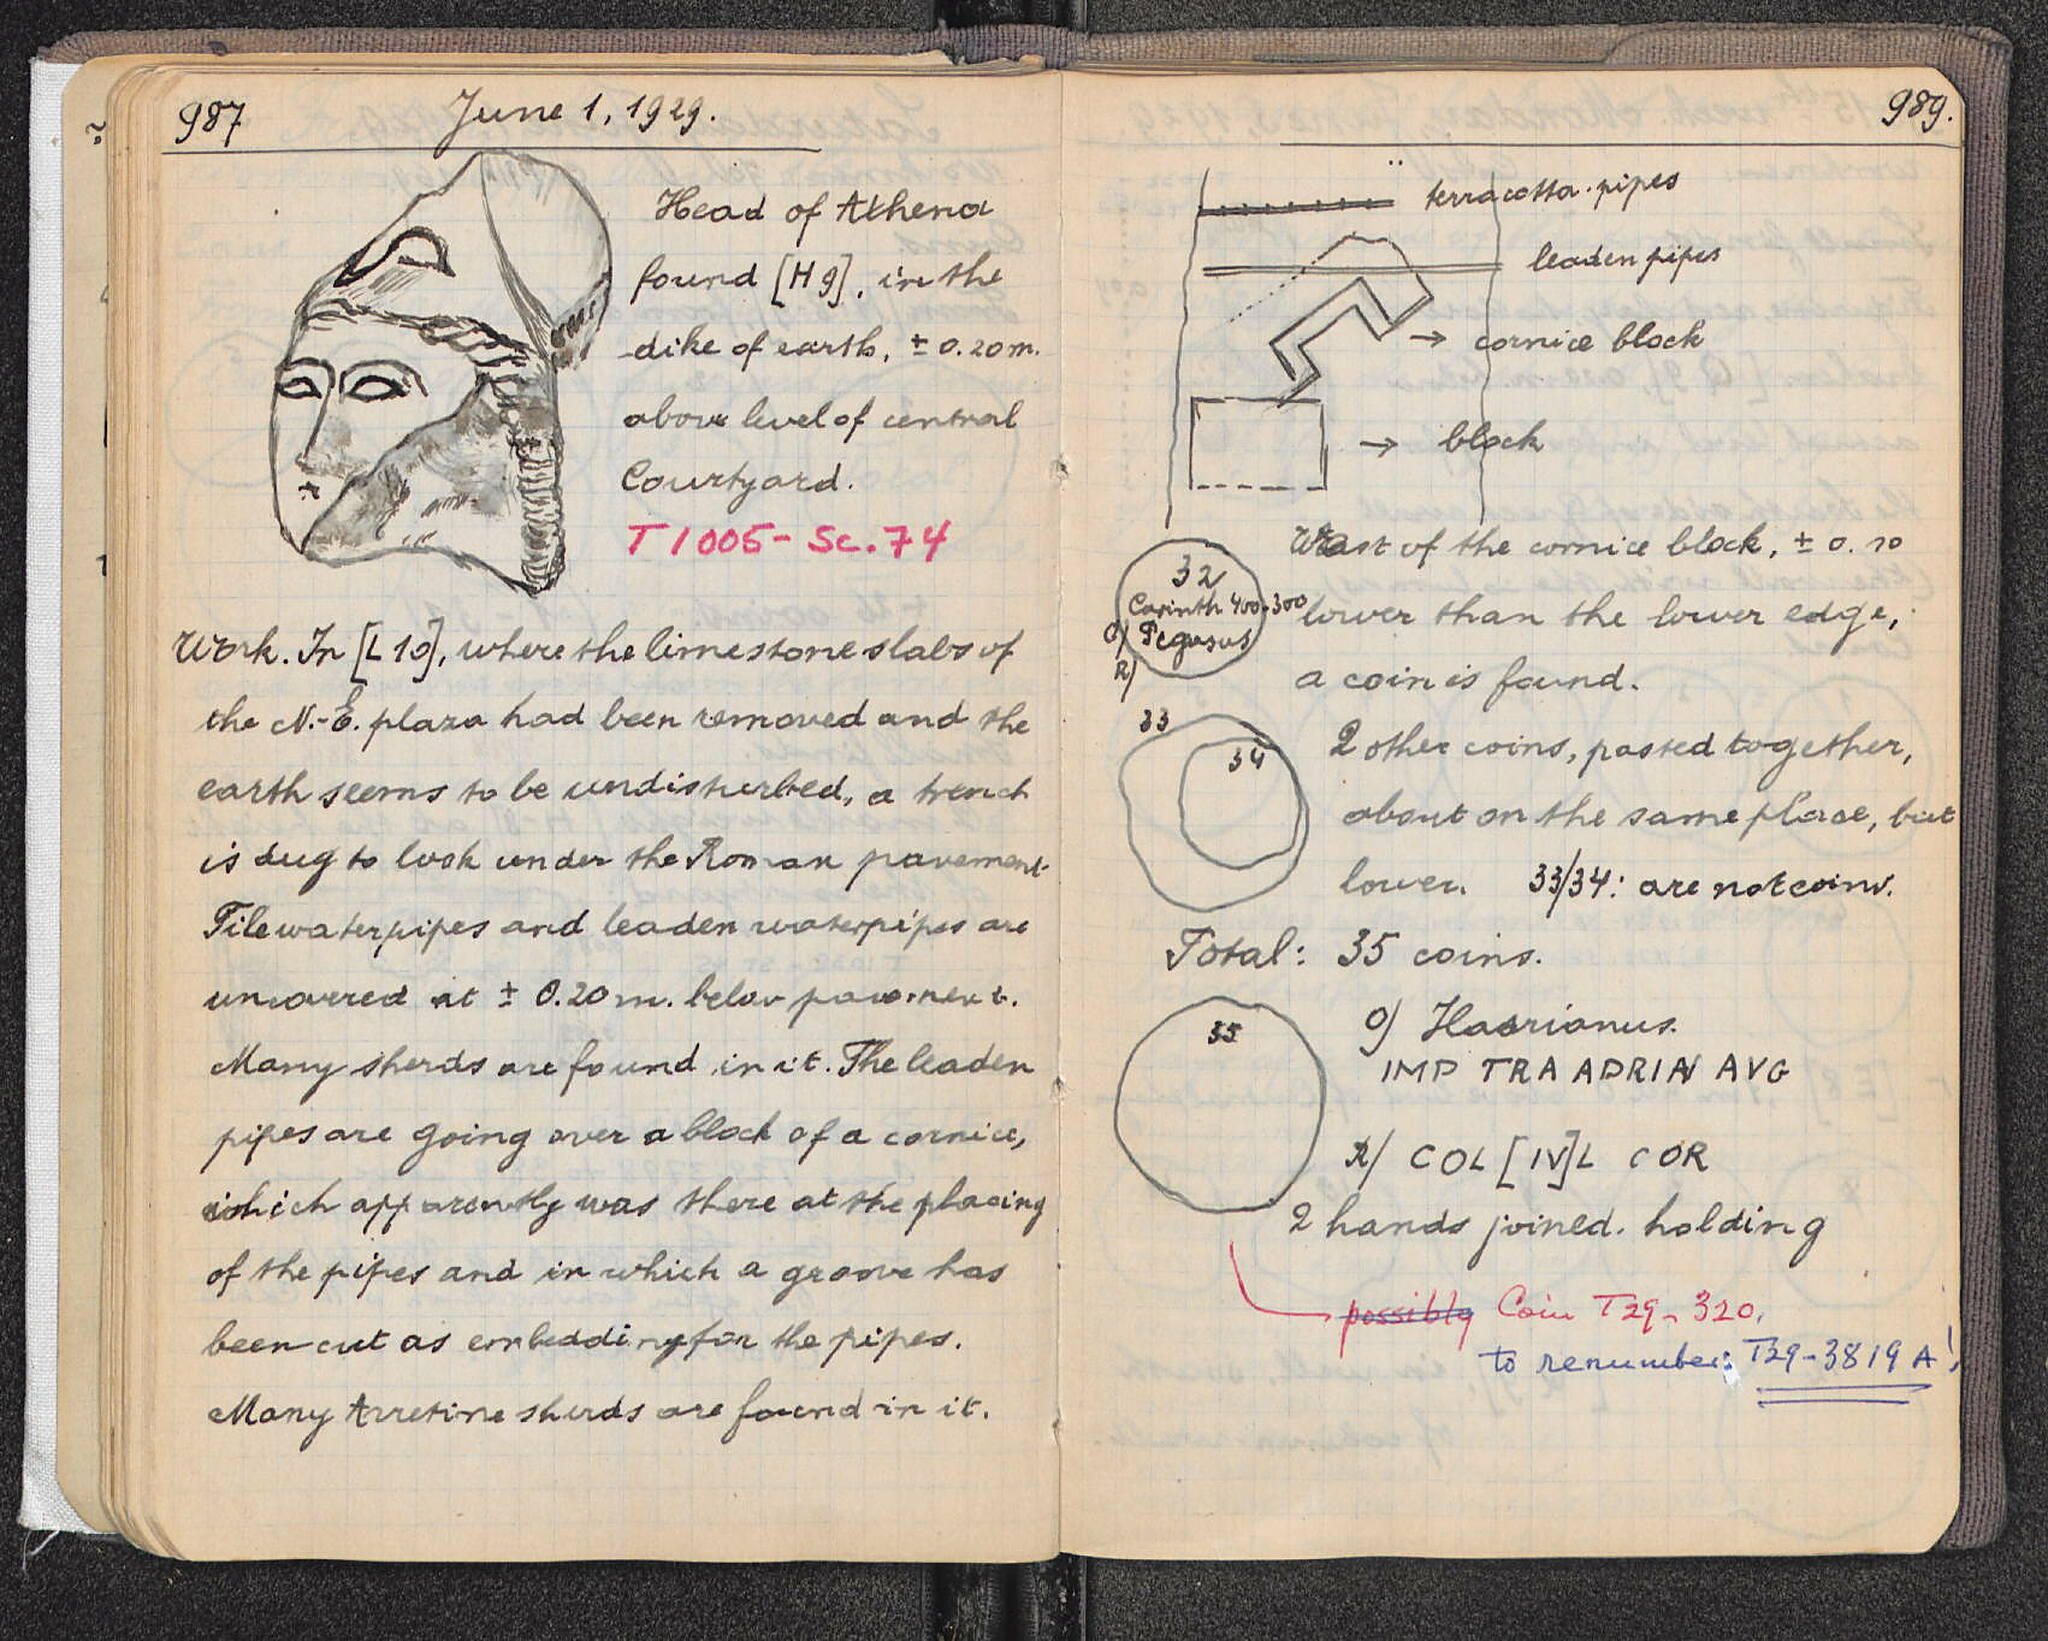 987
June 1, 1929.
Head of Athena
found [H 9], in the
dike of earth, ± 0.20 m.
above level of central
Courtyard.
T 1005 - Sc. 74
Work. In [L 10], where the limestone slabs of
the N.-E. plaza had been removed and the
earth seems to be undisturbed, a trench
is dug to look under the Roman pavement.
Tile waterpipes and leaden waterpipes are
uncovered at ± 0.20 m. below pavement.
Many sherds are found in it. The leaden
pipes are going over a block of a cornice,
which apparently was there at the placing
of the pipes and in which a groove has
been cut as embedding for the pipes.
Many Arretine sherds are found in it.
989.
terracotta-pipes
leaden pipes
→ cornice block
→ block
of the cornice block, ± 0.
lower than the lower edge,
a coin is found.
32
Corinth 400-300
O) Pegasus
R)
33
34
2 other coins, pasted together,
about on the same place, but
lower. 33/34: are not coins.
Total: 35 coins.
35
O) Hadrianus.
IMP TRA ADRIAN AVG
R) COL [IV]L COR
2 hands joined. holding
possibly Coin T29-320.
to renumber: T29-3819 A!